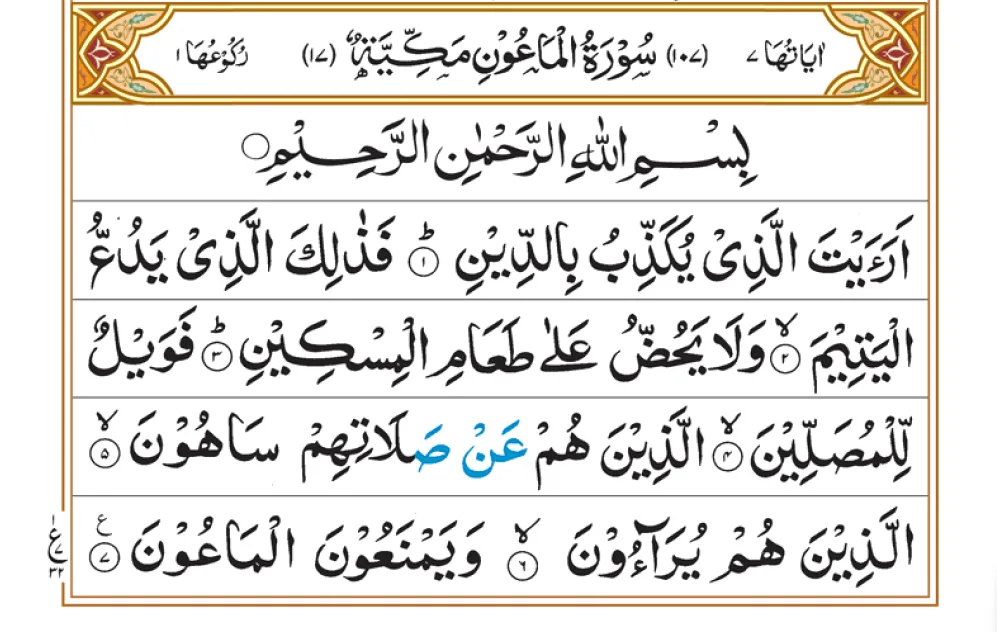 اٰيَاتُهَا ٧ (١٠٧) سُوْرَةُ الْمَاعُوْنِ مَكِّيَّةٌ (١٧) رُكُوْعُهَا ١
بِسْمِ اللّٰهِ الرَّحْمٰنِ الرَّحِيْمِ ○
اَرَءَيْتَ الَّذِىْ يُكَذِّبُ بِالدِّيْنِ ؕ ١ فَذٰلِكَ الَّذِىْ يَدُعُّ
الْيَتِيْمَ ۙ ٢ وَلَا يَحُضُّ عَلٰى طَعَامِ الْمِسْكِيْنِ ؕ ٣ فَوَيْلٌ
لِّلْمُصَلِّيْنَ ۙ ٤ الَّذِيْنَ هُمْ عَنْ صَلَاتِهِمْ سَاهُوْنَ ۙ ٥
الَّذِيْنَ هُمْ يُرَآءُوْنَ ۙ ٦ وَيَمْنَعُوْنَ الْمَاعُوْنَ ٧ ع
١ ع ٧ ٣٢